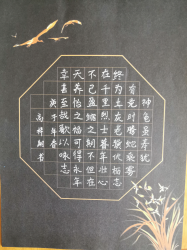 神龟虽寿犹
有竟时腾蛇乘雾
终为土灰老骥伏枥志
在千里烈士暮年壮心
不已盈缩之期不但在
天养怡之福可得永年
幸甚至哉歌以咏志